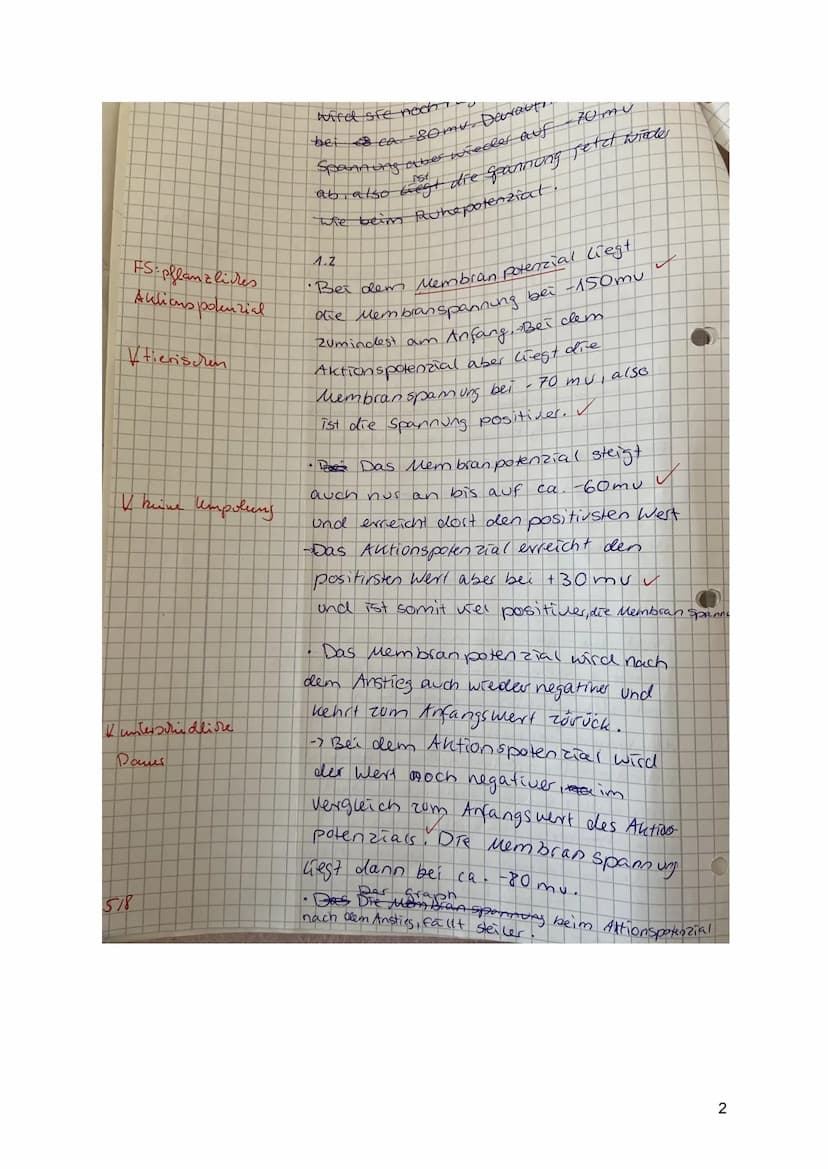 wird sie noch
bei ca -80mv. Darauf
Spannung aber wieder auf -70mv
ab, also ist die Spannung jetzt wieder
wie beim Ruhepotenzial.
1.2
FS: pflanzliches
Aktionspotenzial
· Bei dem Membranpotenzial liegt
die Membranspannung bei -150mv ✓
zumindest am Anfang. Bei dem
V tierischen
Aktionspotenzial aber liegt die
Membranspannung bei -70 mv, also
ist die Spannung positiver. ✓
· Das Membranpotenzial steigt
auch nur an bis auf ca. -60mv ✓
V keine Umpolung
und erreicht dort den positivsten Wert
→Das Aktionspotenzial erreicht den
positivsten Wert aber bei +30mv ✓
und ist somit viel positiver, die Membranspannu
· Das Membranpotenzial wird nach
dem Anstieg auch wieder negativer und
kehrt zum Anfangswert zürück.
V unterschiedliche
Dauer
-> Bei dem Aktionspotenzial wird
der Wert noch negativer, im
vergleich zum Anfangswert des Aktions-
potenzials. ✓ Die Membranspannung
liegt dann bei ca. -80 mv.
5/8
· Der Graph beim Aktionspotenzial
nach dem Anstieg, fällt steiler.
2